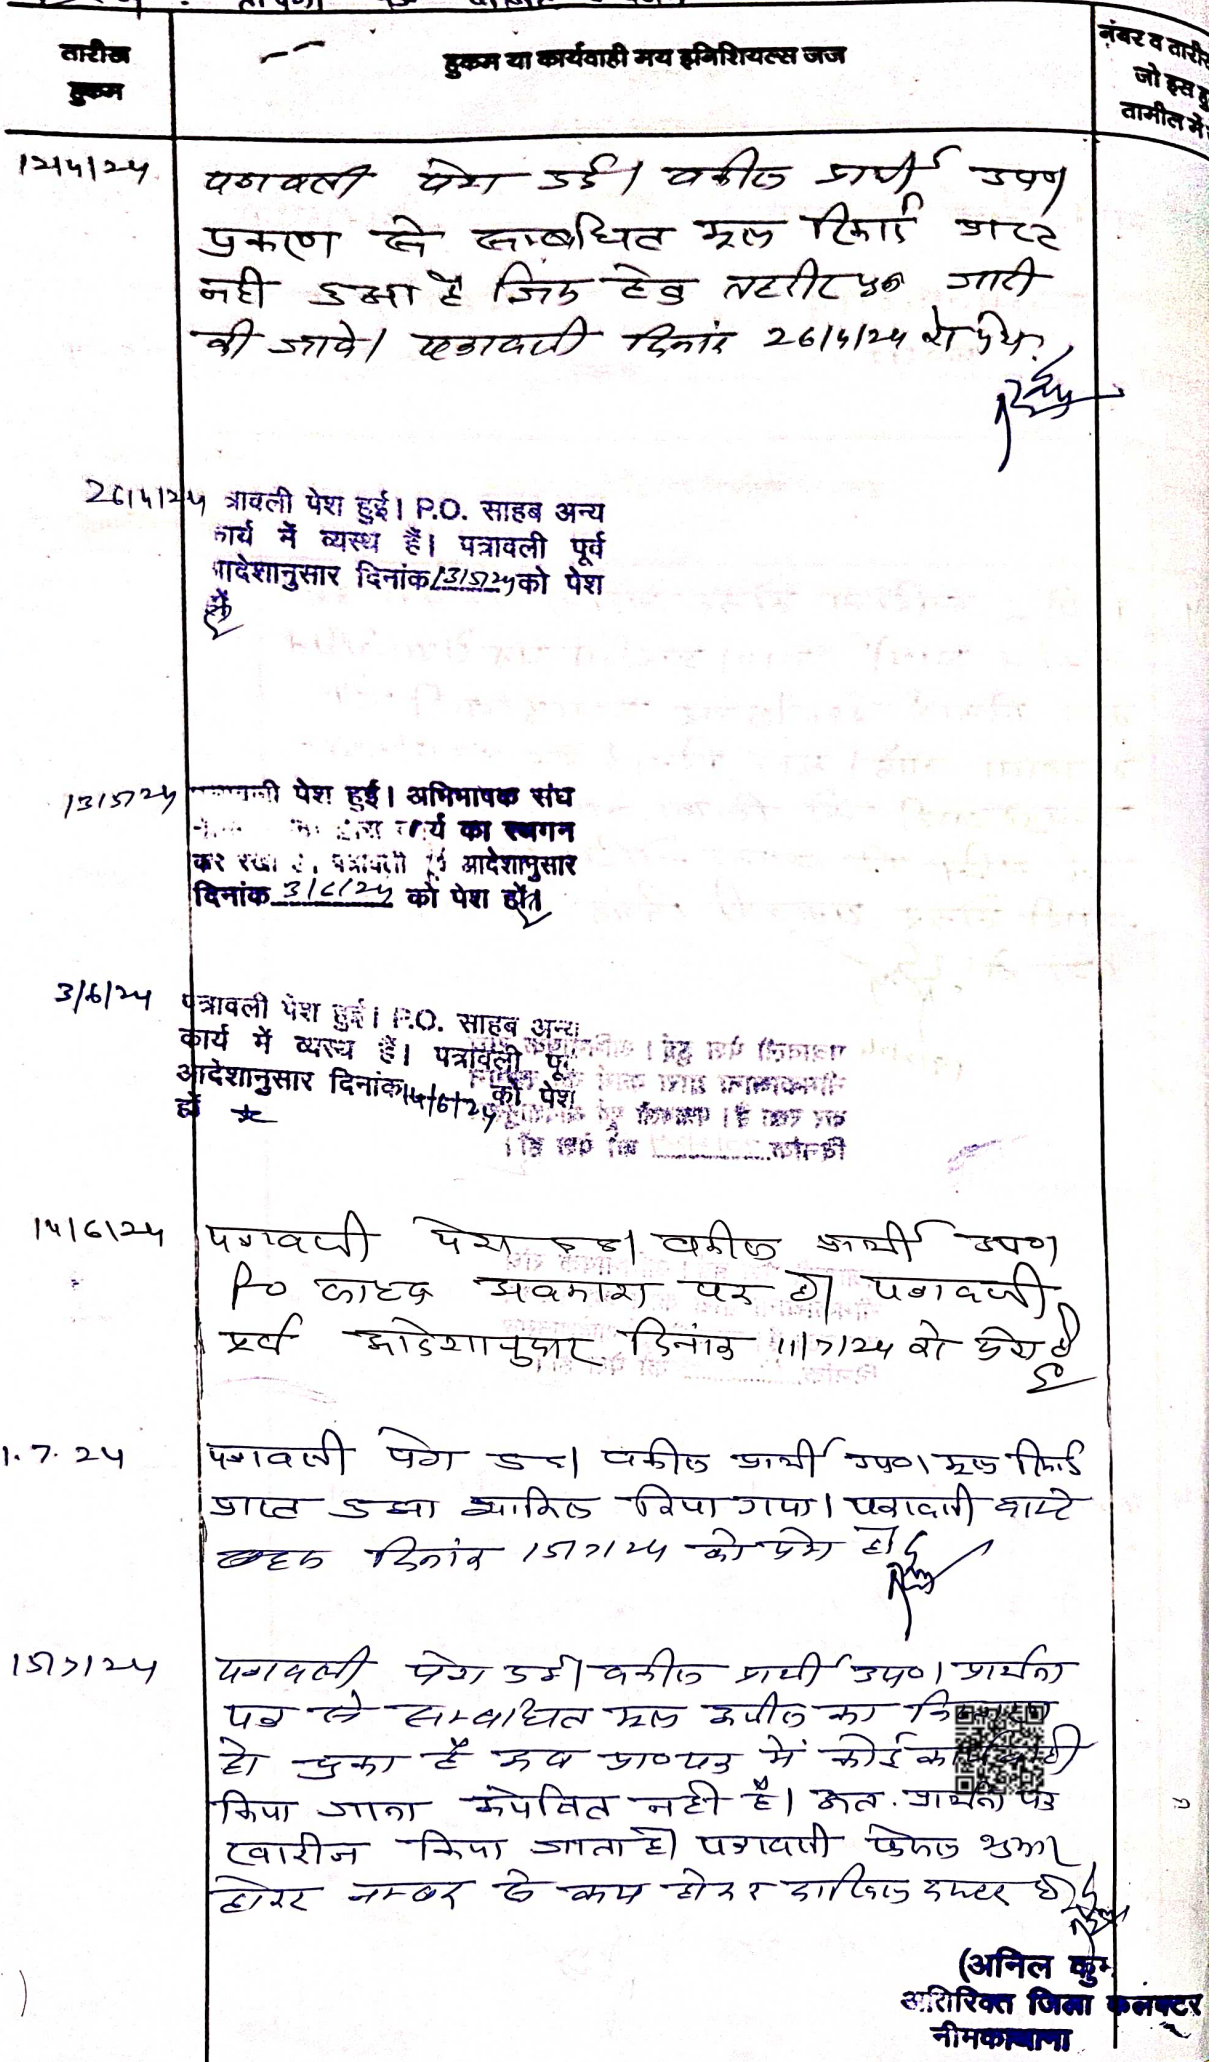 तारीख
हुकम
हुकम या कार्यवाही मय इनिशियल्स जज
नंबर व तारीख
जो इस हु
तामील में
12/4/24
पत्रावली पेश हुई। वकील प्रार्थी उप०।
प्रकरण से सम्बंधित मूल रिकार्ड प्राप्त
नही हुआ है जिस हेतु तहरीर पुनः जारी
की जावे। पत्रावली दिनांक 26/4/24 को पेश हो
26/4/24
त्रावली पेश हुई। P.O. साहब अन्य
कार्य में व्यस्थ हैं। पत्रावली पूर्व
आदेशानुसार दिनांक 13/5/24 को पेश
हों
13/5/24
पेश हुई। अभिभाषक संघ
कार्य का स्थगन
कर रखा है। पत्रावली पूर्व आदेशानुसार
दिनांक 3/6/24 को पेश हों।
3/6/24
पत्रावली पेश हुई। P.O. साहब अन्य
कार्य में व्यस्थ हैं। पत्रावली पूर्व
आदेशानुसार दिनांक 14/6/24 को पेश
हों
14/6/24
पत्रावली पेश हुई। वकील प्रार्थी उप०।
P० साहब अवकाश पर है। पत्रावली
पूर्व आदेशानुसार दिनांक 11/7/24 को पेश हो
1.7.24
पत्रावली पेश हुई। वकील प्रार्थी उप०। मूल रिकार्ड
प्राप्त हुआ शामिल किया गया। पत्रावली वास्ते
बहस दिनांक 15/7/24 को पेश हो
15/7/24
पत्रावली पेश हुई। वकील प्रार्थी उप०। प्रार्थना
पत्र से सम्बंधित मूल अपील का
हो चुका है अब प्रा०पत्र में कोई
किया जाना अपेक्षित नही है। अतः प्रार्थना पत्र
खारीज किया जाता है। पत्रावली फैसल शुमार
होकर नम्बर से कम होकर दाखिल दफ्तर हो
(अनिल कुम
अतिरिक्त जिला कलक्टर
नीमकाथाना